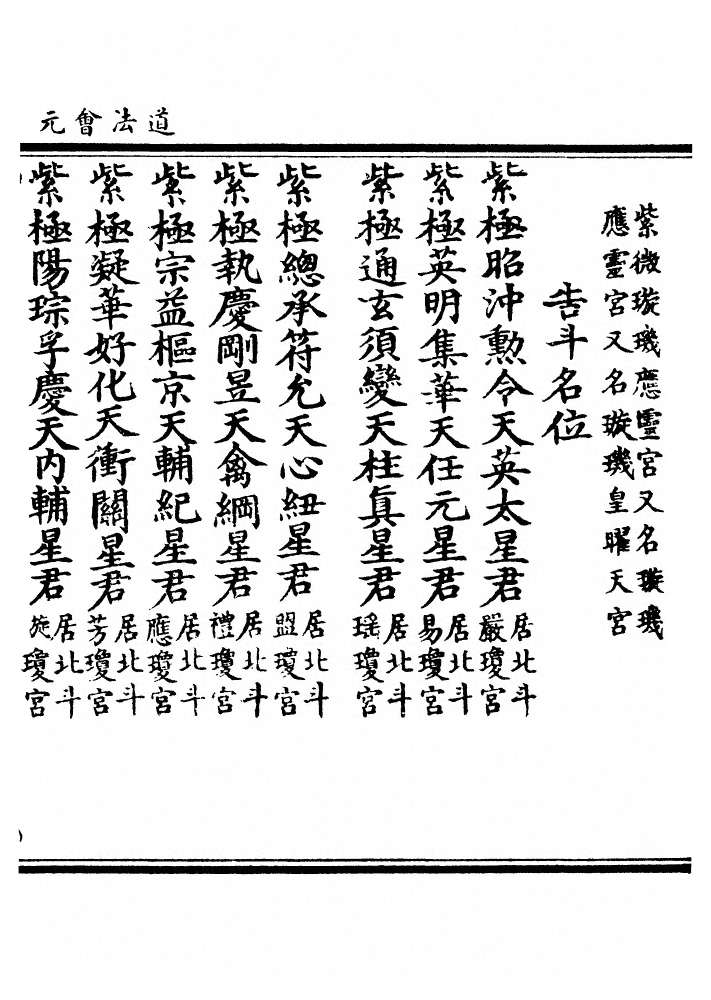 道法會元
紫微璇璣應靈宮又名璇璣
應靈宮又名璇璣皇曜天宮
告斗名位
紫極昭沖勲令天英太星君居北斗嚴瓊宮
紫極英明集華天任元星君居北斗易瓊宮
紫極通玄須變天柱真星君居北斗瑤瓊宮
紫極總承符允天心紐星君居北斗盟瓊宮
紫極執慶剛昱天禽綱星君居北斗禮瓊宮
紫極宗益樞京天輔紀星君居北斗應瓊宮
紫極凝華好化天衝關星君居北斗芳瓊宮
紫極陽琮孚慶天內輔星君居北斗旋瓊宮